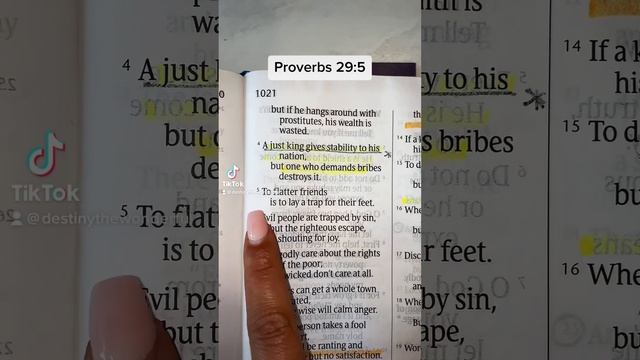 Proverbs 29:5
1021
but if he hangs around with
prostitutes, his wealth is
wasted.
4 A just king gives stability to his
nation,
but one who demands bribes
destroys it.
5 To flatter friends
is to lay a trap for their feet.
Evil people are trapped by sin,
but the righteous escape,
shouting for joy.
odly care about the rights
f the poor;
wicked don't care at all.
s can get a whole town
ated,
wise will calm anger.
person takes a fool
rt,
l be ranting and
but no satisfaction.
th
14 If a k
hi
15 To d
16 Whe
17 Disc
18 Wh
Bu
19 Wor
TikTok
TikTok
@destinythewo
4 A just
na
but o
de
5 To flatt
is to
Evil pe
but t
y to his
s bribes
r feet.
by sin,
ape,
14 If a k
hi
15 To d
16 Whe